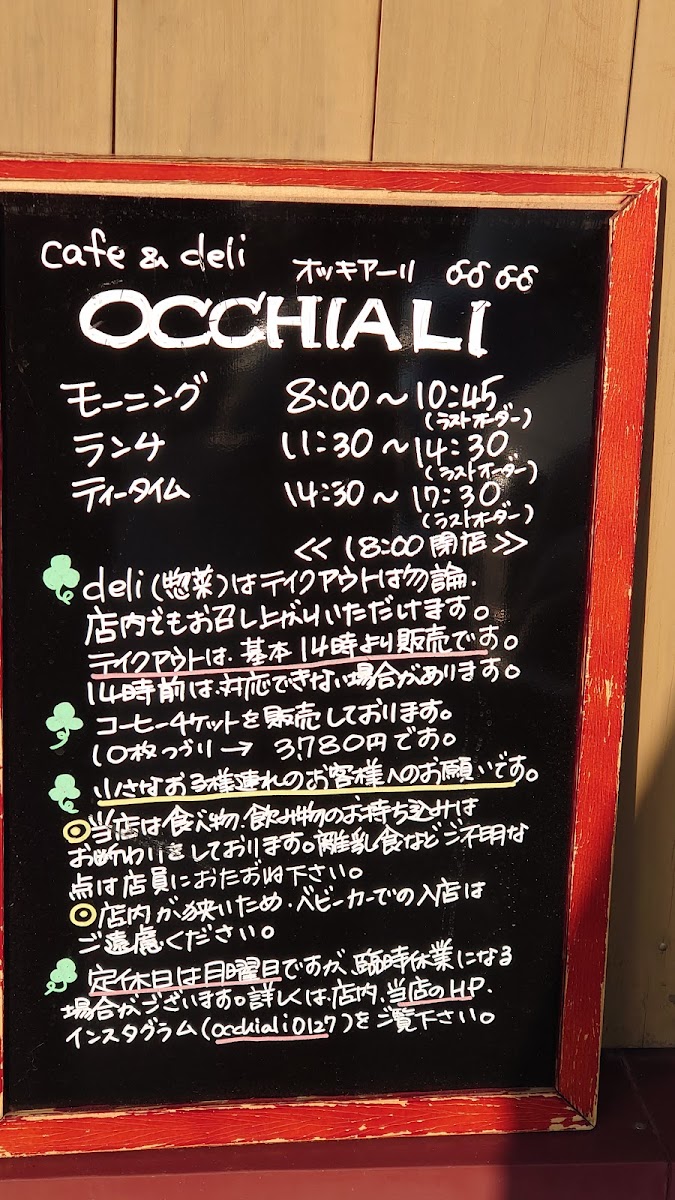 cafe & deli
オッキアーリ
OCCHIALI
モーニング 8:00〜10:45
(ラストオーダー)
ランチ 11:30〜14:30
(ラストオーダー)
ティータイム 14:30〜17:30
(ラストオーダー)
<< 18:00 閉店 >>
deli(惣菜)はテイクアウトは勿論、
店内でもお召し上がりいただけます。
テイクアウトは、基本14時より販売です。
14時前は、対応できない場合があります。
コーヒーチケットを販売しております。
10枚つづり→ 3,780円です。
小さなお子様連れのお客様へのお願いです。
◎当店は食べ物、飲み物のお持ち込みは
お断わりをしております。離乳食などご不明な
点は店員におたずね下さい。
◎店内が狭いため、ベビーカーでの入店は
ご遠慮ください。
定休日は月曜日ですが、臨時休業になる
場合がございます。詳しくは店内、当店のHP、
インスタグラム(occhiali0127)をご覧下さい。